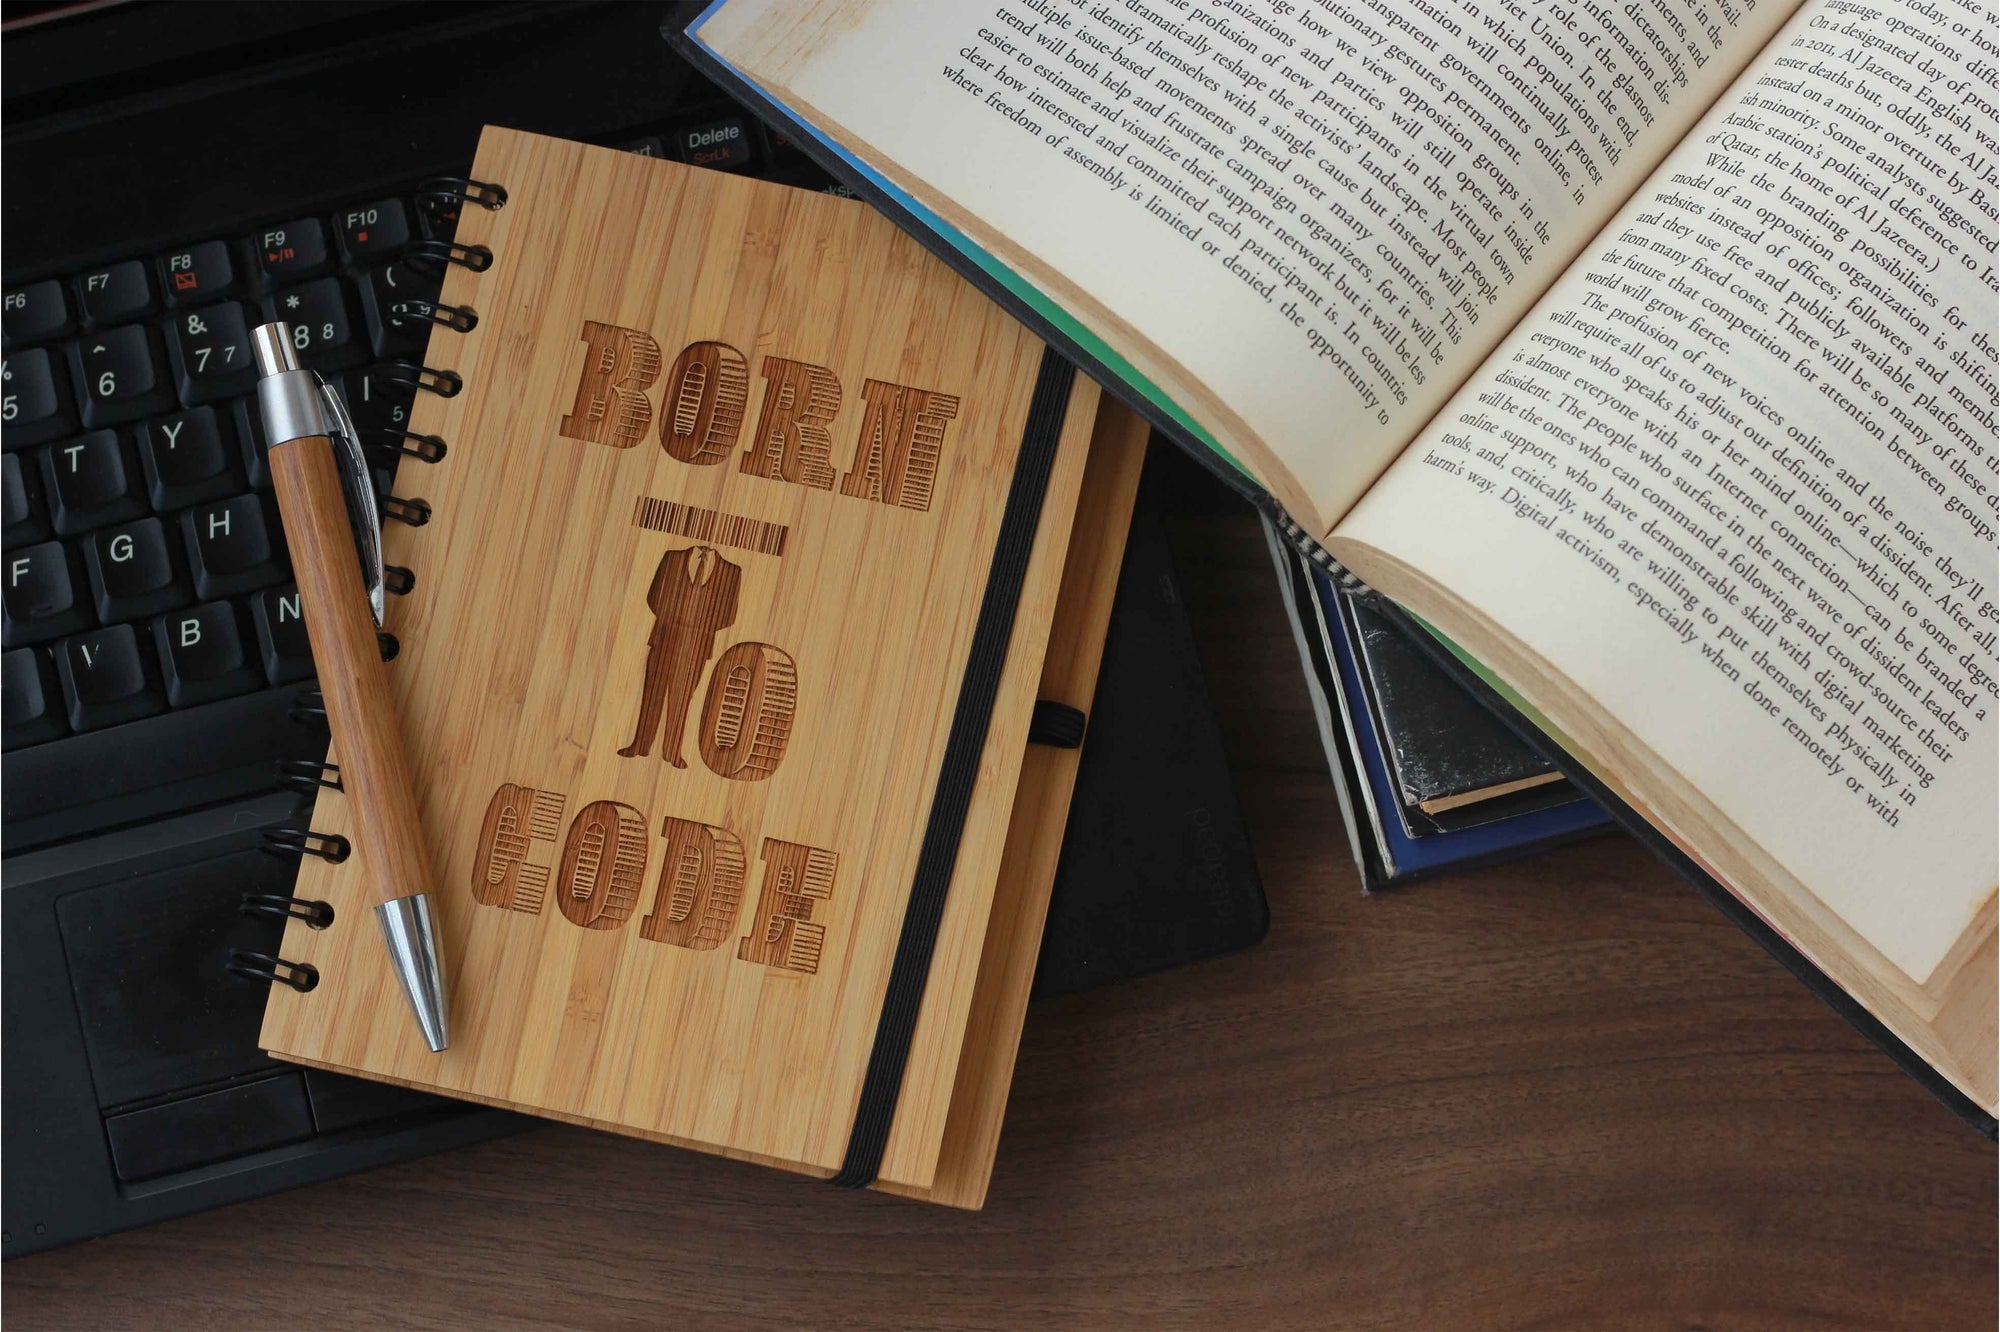 Delete
ScrLk
F6
F7
F8
F9
F10
%
5
^
6
&
7 7
*
8 8
(
9 9
T
Y
I
5
F
G
H
V
B
N
BORN
TO
CODE
ideapad
avail.
ments, and
role of the glasnost
Viet Union. In the end,
in which populations with
mination will continually protest
transparent governments online, in
olutionary gestures permanent.
nge how we view opposition groups in the
ganizations and parties will still operate inside
he profusion of new participants in the virtual town
dramatically reshape the activists' landscape. Most people
not identify themselves with a single cause but instead will join
multiple issue-based movements spread over many countries. This
trend will both help and frustrate campaign organizers, for it will be
easier to estimate and visualize their support network but it will be less
clear how interested and committed each participant is. In countries
where freedom of assembly is limited or denied, the opportunity to
today, or how
language operations differ
On a designated day of prot
in 2011, Al Jazeera English was
tester deaths but, oddly, the Al Ja
instead on a minor overture by Bas
ish minority. Some analysts suggested
Arabic station's political deference to Ira
of Qatar, the home of Al Jazeera.)
While the branding possibilities for thes
model of an opposition organization is shifting
websites instead of offices; followers and membe
and they use free and publicly available platforms th
from many fixed costs. There will be so many of these d
the future that competition for attention between groups
world will grow fierce.
The profusion of new voices online and the noise they'll ge
will require all of us to adjust our definition of a dissident. After all,
everyone who speaks his or her mind online—which to some degre
is almost everyone with an Internet connection—can be branded a
dissident. The people who surface in the next wave of dissident leaders
will be the ones who can command a following and crowd-source their
online support, who have demonstrable skill with digital marketing
tools, and, critically, who are willing to put themselves physically in
harm's way. Digital activism, especially when done remotely or with